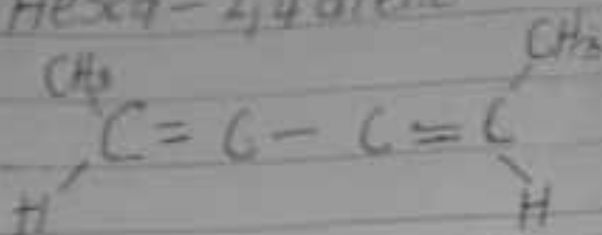 Hexa-2,4 diene
CH3 CH3
C = C - C = C
H H